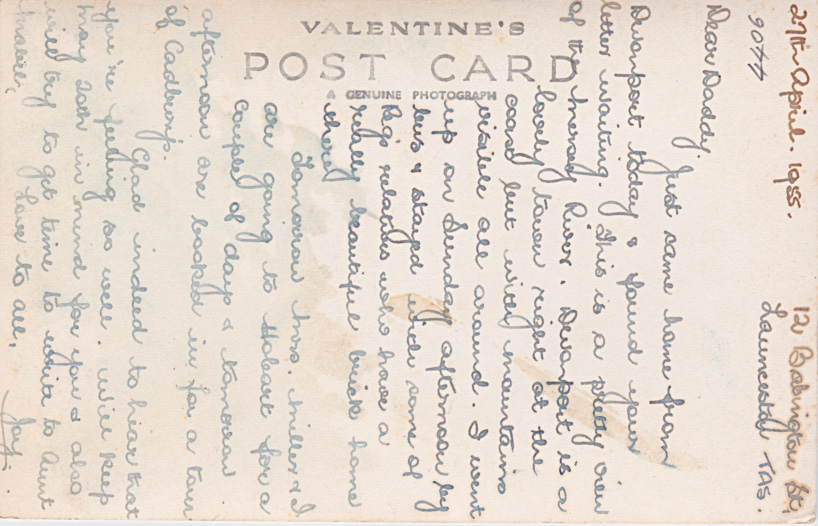 VALENTINE'S
POST CARD
A GENUINE PHOTOGRAPH
27th April. 1955.
12 Babington St.
Launceston TAS.
9044
Dear Daddy.
Just came home from
Devonport today & found your
letter waiting. This is a pretty view
of the Mersey River. Devonport is a
lovely town right at the
coast but with mountains
visible all around. I went
up on Sunday afternoon by
bus & stayed with some of
Reg's relations who have a
really beautiful brick home
there.
Tomorrow Mrs. Miller & I
are going to Hobart for a
couple of days & tomorrow
afternoon are booked in for a tour
of Cadbury's.
Glad indeed to hear that
you're feeling so well. Will keep
May 20th in mind for you & also
will try to get time to write to Aunt
Mabel.
Love to all,
Joy.